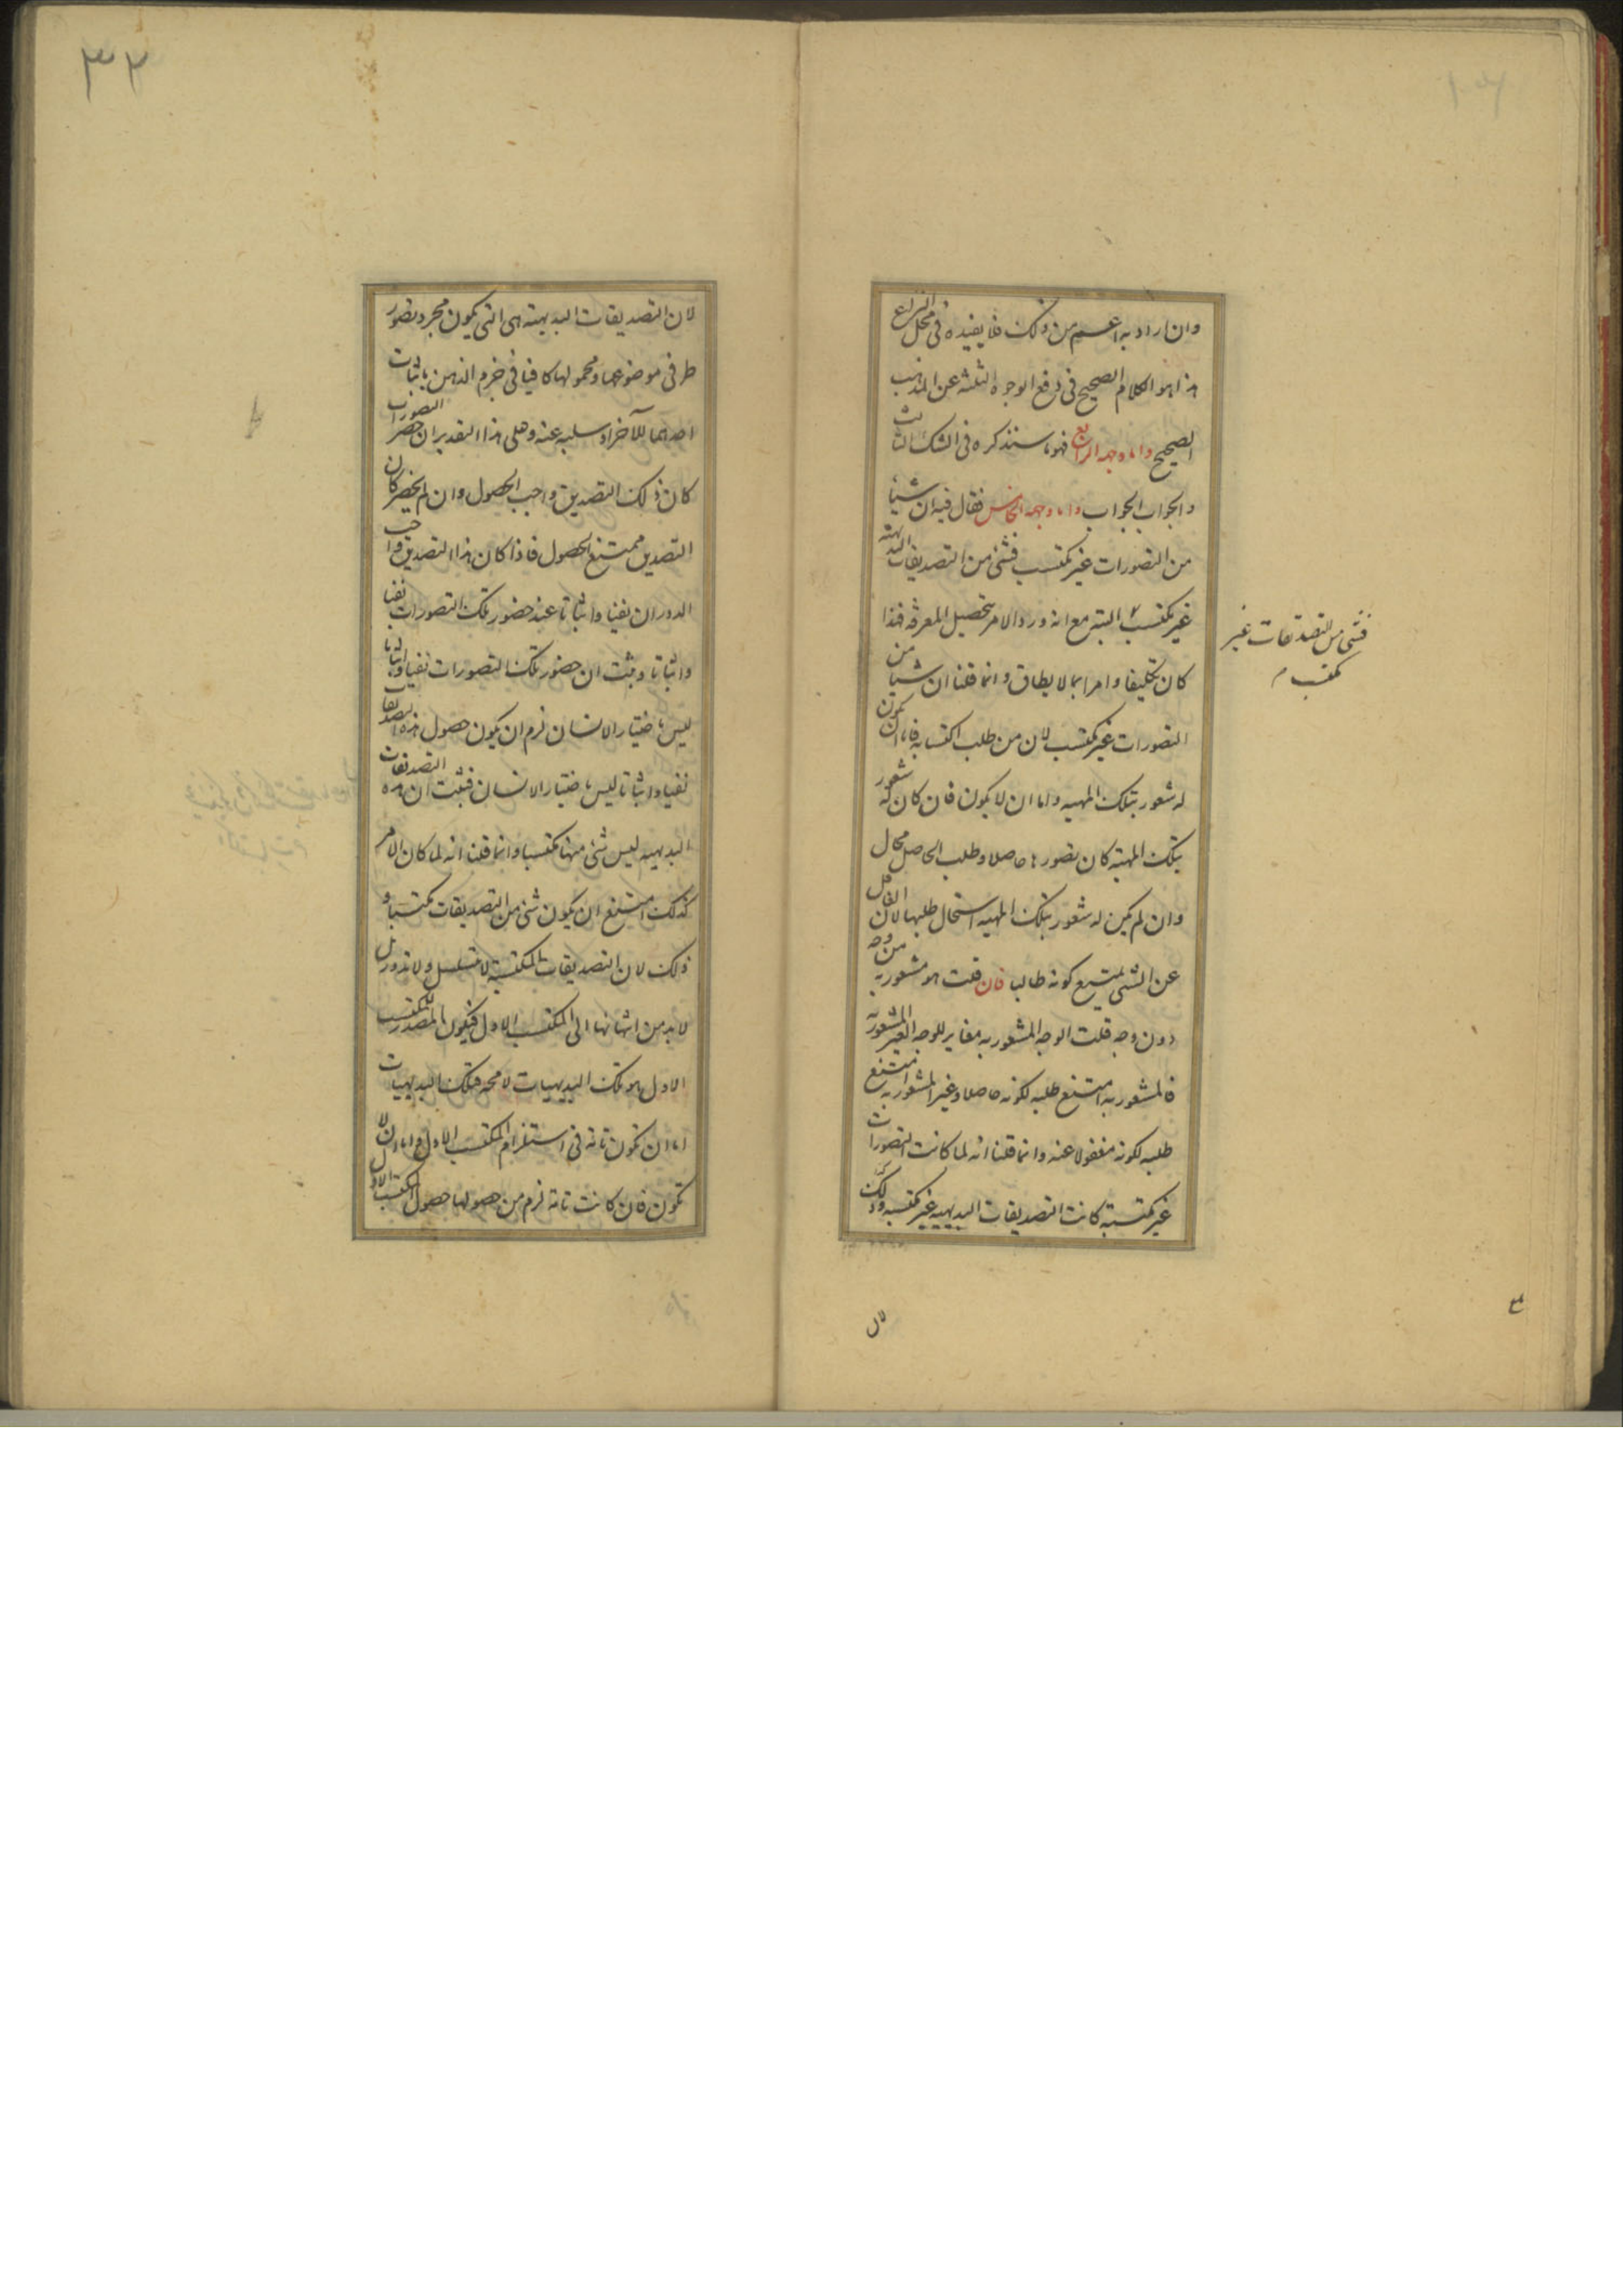 وان اراد به اعم من ذلك فلا يفيده فى محل النزاع
هذا هو الكلام الصحيح فى دفع الوجوه الثلثة عن المذهب
الصحيح واما وجهه الرابع فهو ما سنذكره فى الشك الثالث
والجواب الجواب واما وجهه الخامس فقال فيه ان شيئا
من التصورات غير مكتسب فشئ من التصديقات البديهية
غير مكتسب البتة مع انه ورد الامر بتحصيل المعرفة فهذا
كان تكليفا وامرا بما لا يطاق وانما قلنا ان شيئا من
التصورات غير مكتسب لان من طلب اكتسابه فاما ان يكون
له شعور بتلك المهية واما ان لا يكون فان كان له شعور
بتلك المهية كان تصورها حاصلا وطلب الحاصل محال
وان لم يكن له شعور بتلك المهية استحال طلبها لان الغافل
عن الشئ يمتنع كونه طالبا فان قلت هو مشعور به من وجه
دون وجه قلت الوجه المشعور به مغاير للوجه الغير المشعور به
فالمشعور به امتنع طلبه لكونه حاصلا وغير المشعور به امتنع
طلبه لكونه مغفولا عنه وانما قلنا انه لما كانت التصورات
غير مكتسبة كانت التصديقات البديهية غير مكتسبة وذلك
فشئ من التصديقات غير
مكتسب م
لان
لان التصديقات البديهية هى التى يكون مجرد تصور
طرفى موضوعها ومحمولها كافيا فى جزم الذهن باثبات
احدهما للآخر او سلبه عنه وعلى هذا التقدير ان حضر التصورات
كان ذلك التصديق واجب الحصول وان لم يحضر كان
التصديق ممتنع الحصول فاذا كان هذا التصديق واجب
الدوران نفيا واثباتا عند حضور تلك التصورات نفيا
واثباتا وثبت ان حضور تلك التصورات نفيا واثباتا
ليس باختيار الانسان لزم ان يكون حصول هذه التصديقات
نفيا واثباتا ليس باختيار الانسان فثبت ان هذه التصديقات
البديهية ليس شئ منها مكتسبا وانما قلنا انه لما كان الامر
كذلك امتنع ان يكون شئ من التصديقات مكتسبا و
ذلك لان التصديقات المكتسبة لا تتسلسل ولا تدور بل
لابد من انتهائها الى المكتسب الاول فيكون المصدر للمكتسب
الاول هو تلك البديهيات لا محة فتلك البديهيات
اما ان تكون تامة فى استلزام المكتسب الاول واما ان لا
تكون فان كانت تامة لزم من حصولها حصول المكتسب الاول
٣٢